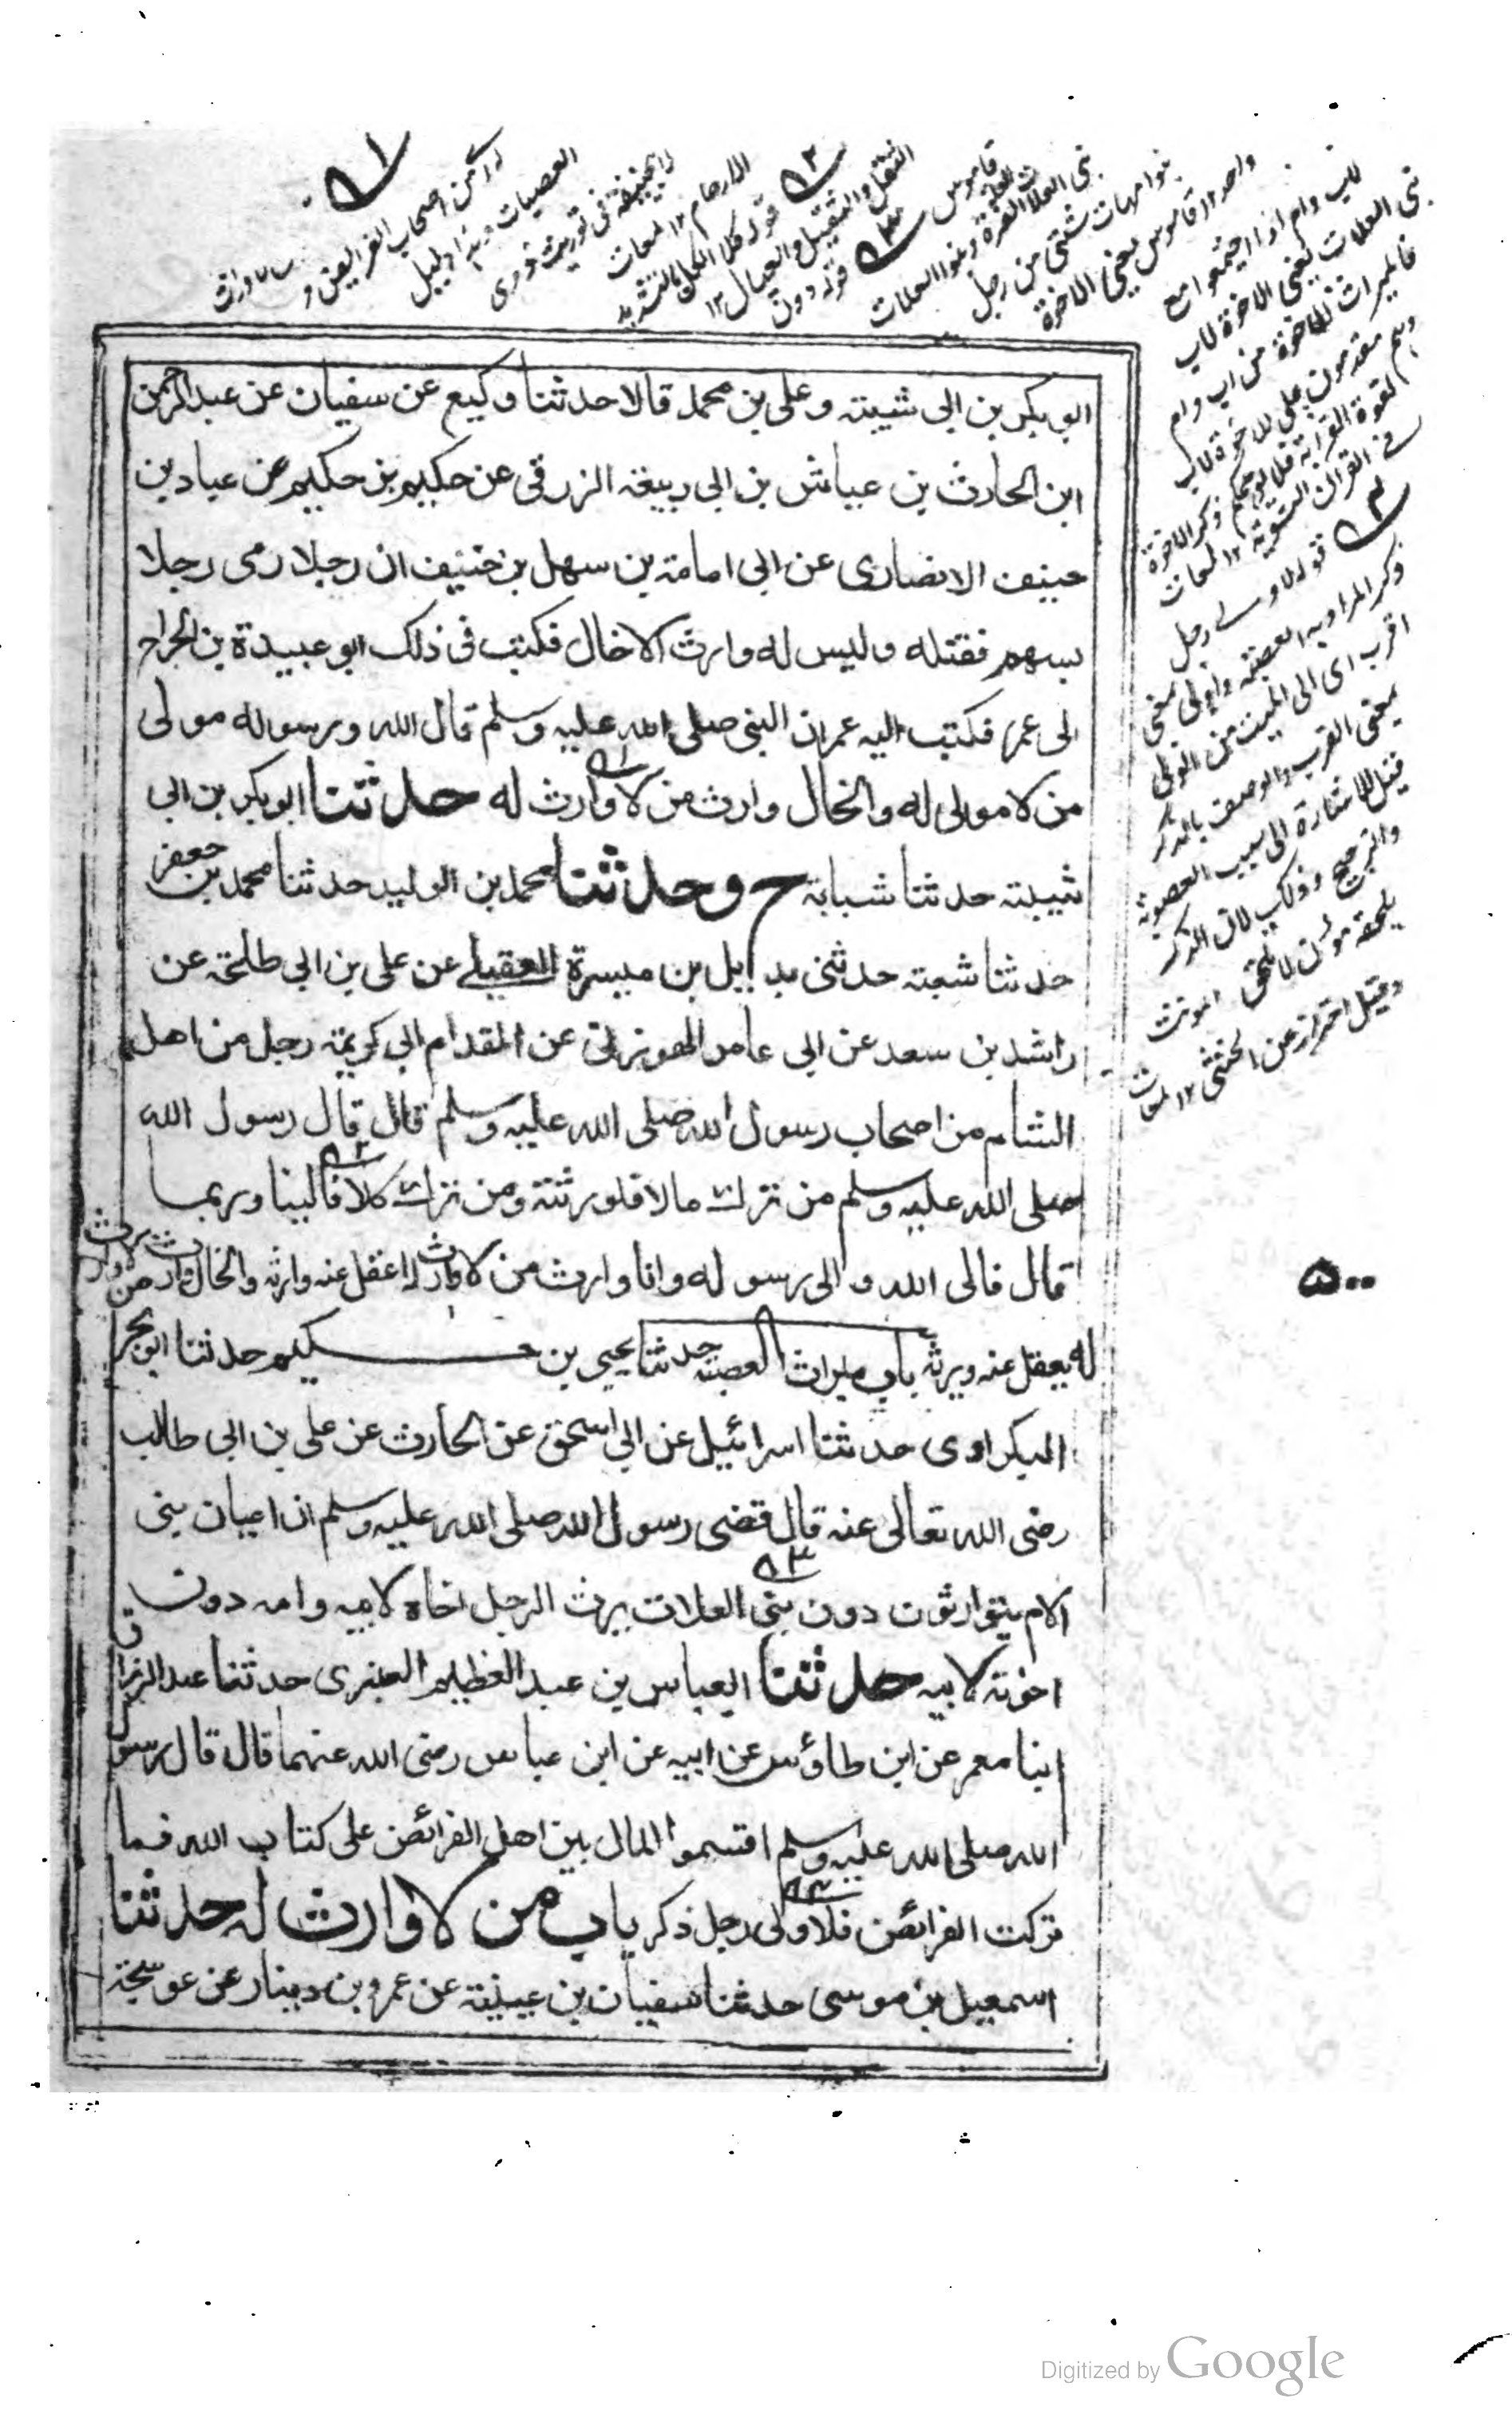 ابوبكر بن ابى شيبته وعلى بن محمد قالا حدثنا وكيع عن سفيان عن عبدالرحمن
ابن الحارث بن عياش بن ابى ربيعة الزرقى عن حكيم بن حكيم عن عبادبن
حينف الانصارى عن ابى امامة بن سهل بن حنيف ان رجلا رمى رجلا
بسهم فقتله وليس له وارث الا خال فكتب فى ذلك ابو عبيدة بن الجراح
الى عمر فكتب اليه عمر ان النبى صلى الله عليه وسلم قال الله ورسوله مولى
من لا مولى له والخال وارث من لا وارث له حدثنا ابوبكر بن ابى
شيبته حدثنا شبابة ح وحدثنا محمد بن الوليد حدثنا محمد بن جعفر
حدثنا شعبته حدثنى بديل بن ميسرة العقيلے عن على بن ابى طلحة عن
راشد بن سعد عن ابى عامر الهوزنى عن المقدام ابى كريمة رجل من اهل
الشام من اصحاب رسول الله صلى الله عليه وسلم قال قال رسول الله
صلى الله عليه وسلم من ترك مالا فلورثته ومن ترك كلا فالينا وربما
قال فالى الله والى رسوله وانا وارث من لا وارث له اعقل عنه وارثه والخال وارث من لا وارث
له يعقل عنه ويرثه باب ميراث العصبة حدثنا يحيى بن حكيم حدثنا ابو بحر
البكراوى حدثنا اسرائيل عن ابى اسحق عن الحارث عن على بن ابى طالب
رضى الله تعالى عنه قال قضى رسول الله صلى الله عليه وسلم ان اعيان بنى
الام يتوارثون دون بنى العلات يرث الرجل اخاه لابيه وامه دون
اخوته لابيه حدثنا العباس بن عبد العظيم العنبرى حدثنا عبد الرزاق
انبا معمر عن ابن طاؤس عن ابيه عن ابن عباس رضى الله عنهما قال قال رسول
الله صلى الله عليه وسلم اقتسموا المال بين اهل الفرائض على كتاب الله فما
تركت الفرائض فلاولى رجل ذكر باب من لا وارث له حدثنا
اسمعيل بن موسى حدثنا سفيان بن عيينة عن عمرو بن دينار عن عوسجة
قوله كلا الكل بالتشديد
الثقل والثقيل والعيال ١٢
قاموس
قوله دون
بنو امهات شتى من رجل
واحد ١٢ قاموس يعنى الاخوة
لاب وام اذا اجتمعوا مع
بنى العلات يعنى الاخوة لاب
فالميراث للاخوة من اب وام
وهم مقدمون على الاخوة لاب
قوله لاولے رجل
ذكر المراد به العصبة واولى بمعنى
اقرب اى الى الميت من الولى
بمعنى القرب والوصف بالذكر
قيل للاشارة الى سبب العصوبة
وقيل احتراز عن الخنثى ١٢ لمعات
٥٠٠
Digitized by Google